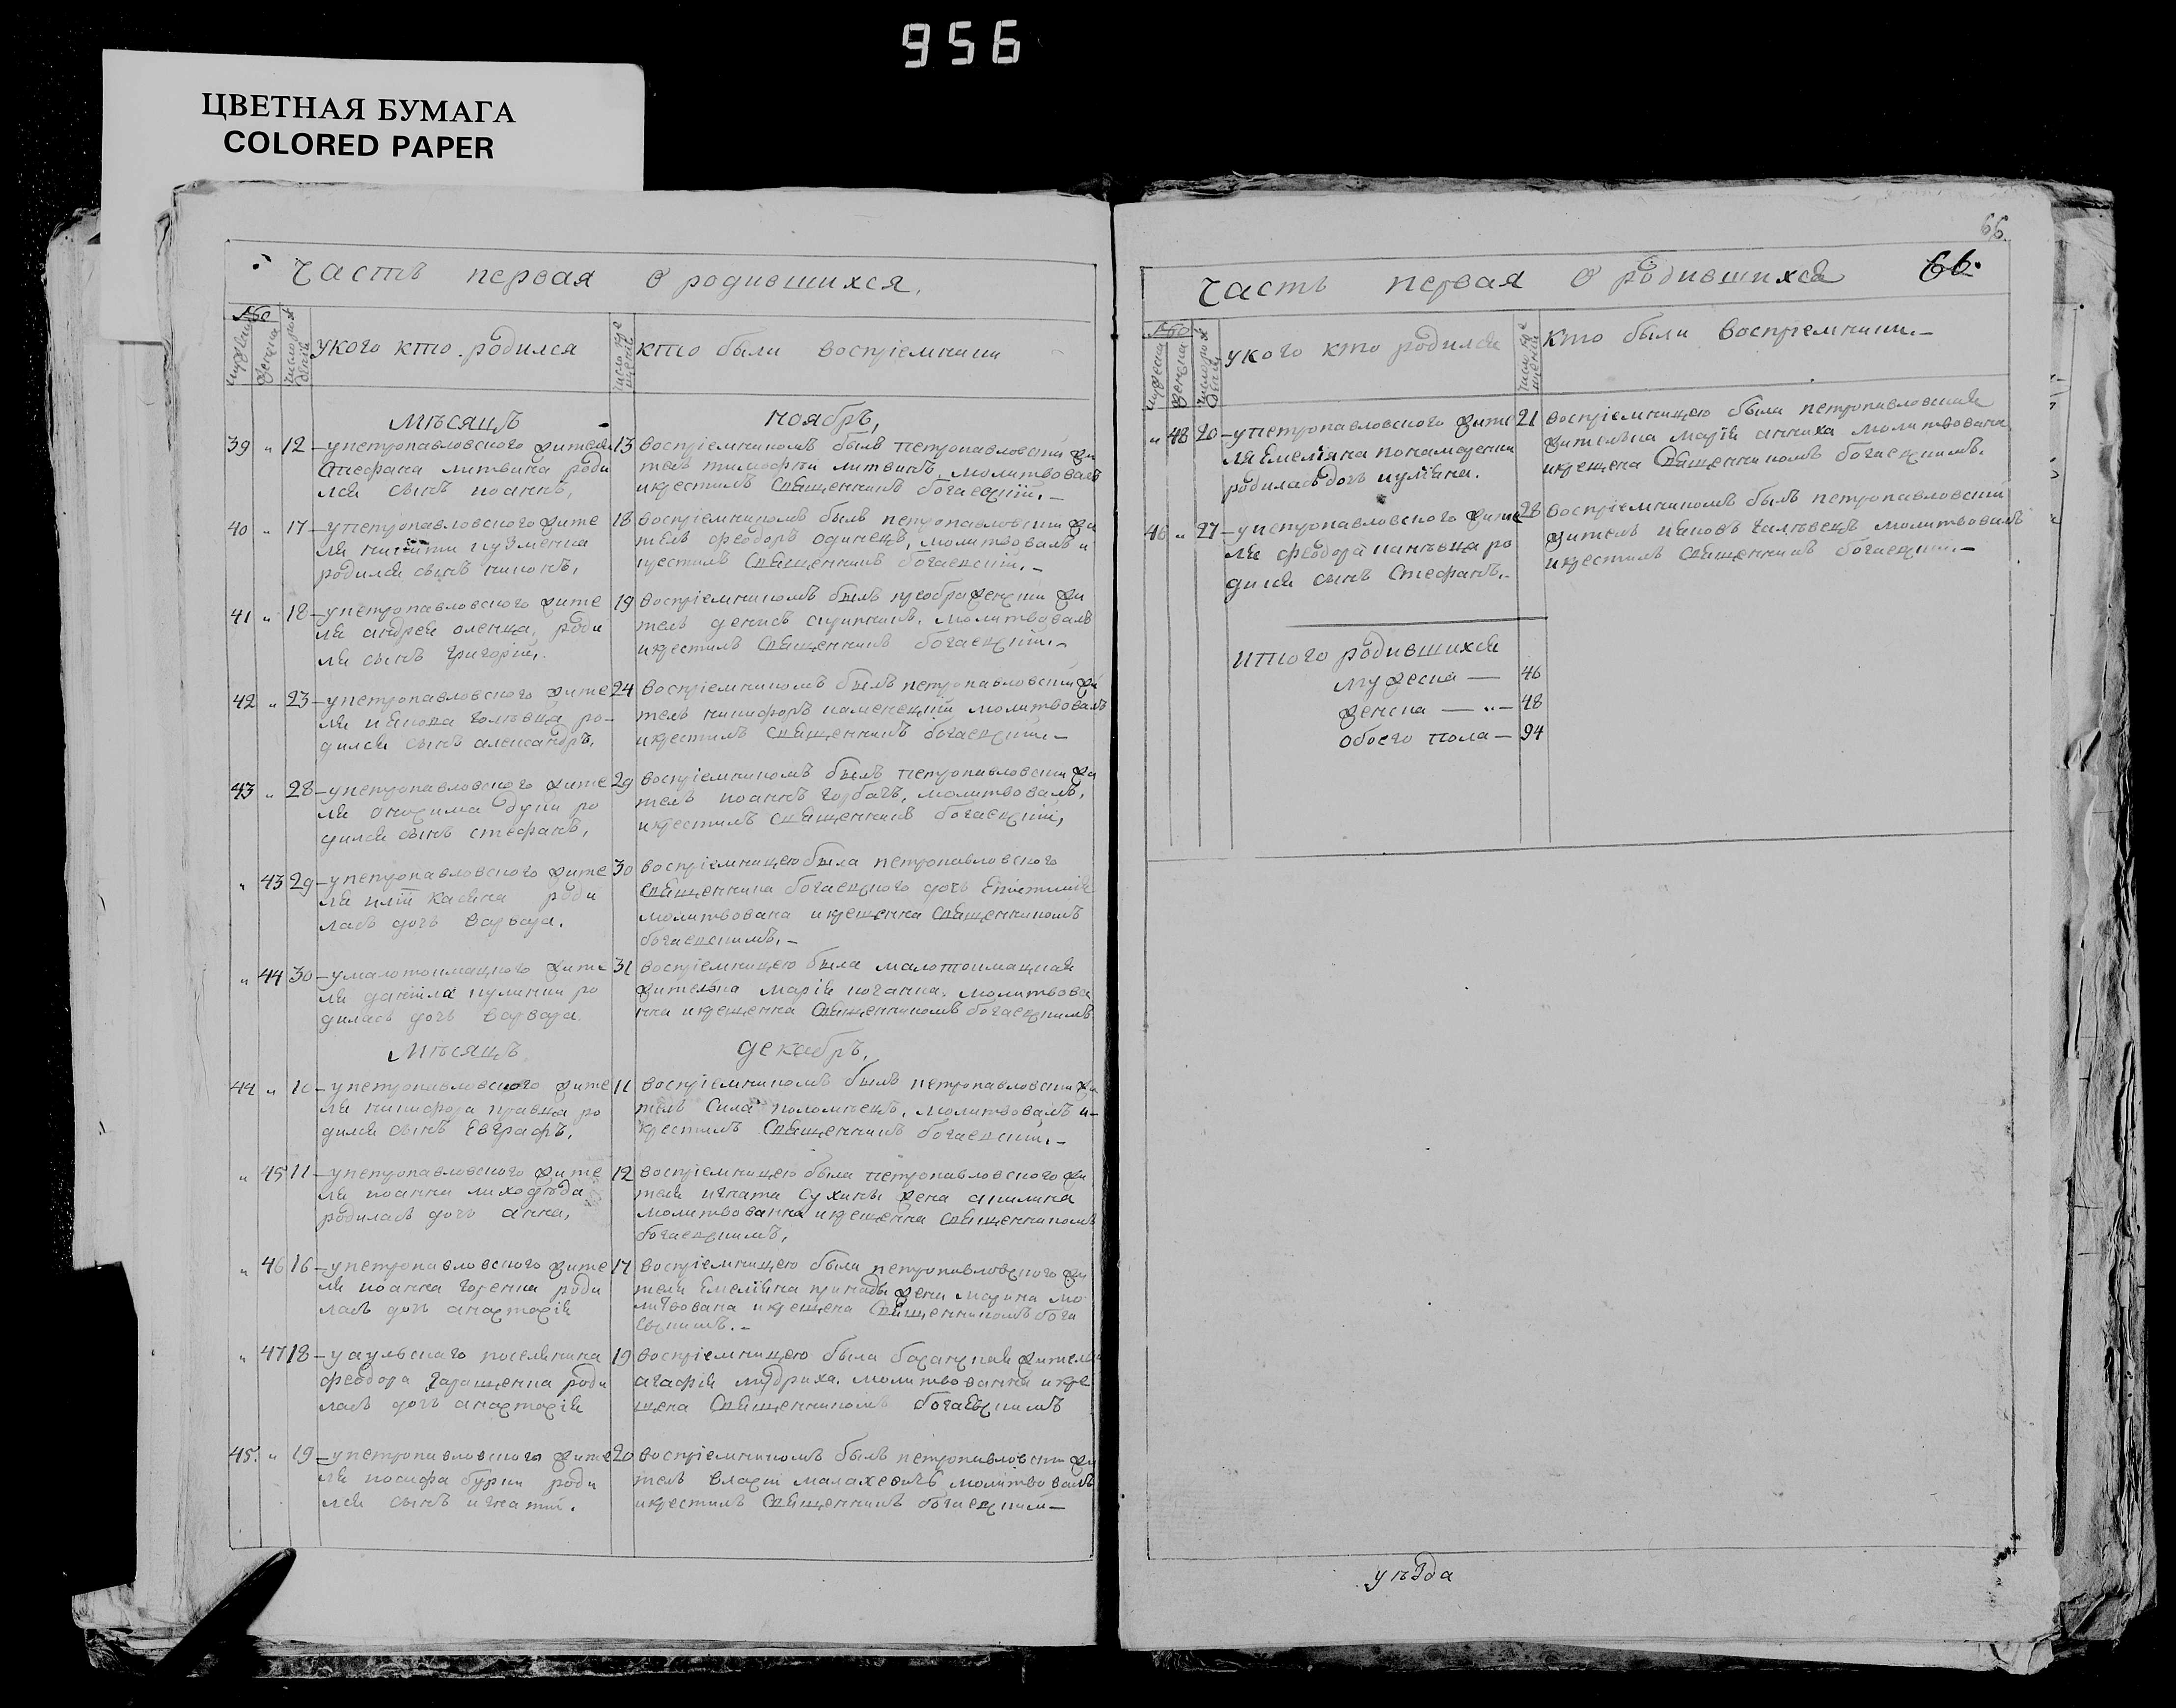 956
ЦВЕТНАЯ БУМАГА
COLORED PAPER
Часть первая о родившихся.
№
мужеска
женска
число рож
денія
укого кто родился
число кре
щенія
кто были воспріемники
Мѣсяцъ ноябрь,
39 „ 12 – упетропавловского жителя
Стефана литвина роди
лся сынъ иоаннъ,
13 воспріемникомъ былъ петропавловскій жи
тель тимофѣй литвинъ, молитвовалъ
икрестилъ Священникъ богаевскій. –
40 „ 17 – упетропавловского жите
ля никиты кузменка
родился сынъ никонъ,
18 воспріемникомъ былъ петропавловскій жи
тель феодоръ одинецъ, молитвовалъ и
крестилъ Священникъ богаевскій. –
41 „ 18 – упетропавловского жите
ля андрея оленца, роди
лся сынъ григорій,
19 воспріемникомъ былъ преображенскій жи
тель денисъ скрипникъ, молитвовалъ
икрестилъ Священникъ богаевскій. –
42 „ 23 – упетропавловского жите
ля иякова ро–
дился сынъ александръ,
24 воспріемникомъ былъ петропавловскій жи
тель никифоръ каменецкій молитвовалъ
икрестилъ Священникъ богаевскій –
43 „ 28 – упетропавловского жите
ля онисима ро
дился сынъ стефанъ,
29 воспріемникомъ былъ петропавловскій жи
тель иоаннъ горбачъ, молитвовалъ,
икрестилъ Священникъ богаевскій,
„ 43 29 – упетропавловского жите
ля иліи касяна роди
лась дочь варвара.
30 воспріемницею была петропавловского
Священника богаевского дочь Епистимія
молитвована икрещенна Священникомъ
богаевскимъ. –
„ 44 30 – умалотокмацкого жите
ля даніила кулинки ро
дилась дочь варвара.
31 воспріемницею была малотокмацкая
жителька марія коганка. молитвова
нна икрещенна Священникомъ богаевскимъ
Мѣсяцъ декабрь.
44 „ 10 – упетропавловского жите
ля никифора правца ро
дился сынъ Евграфъ,
11 воспріемникомъ былъ петропавловскій жи
тель Сила коломѣецъ, молитвовалъ и–
крестилъ Священникъ богаевскій. –
„ 45 11 – упетропавловского жите
ля иоанна лиходѣда
родилась дочь анна,
12 воспріемницею была петропавловского жи
теля игната Сухины жена акилина
молитвованна икрещенна Священникомъ
богаевскимъ,
„ 46 16 – упетропавловского жите
ля иоанна горенка роди
лась дочь анастасія
17 воспріемницею была петропавловского жи
теля Емелїяна жена марина мо
литвована икрещена Священникомъ бога
евскимъ. –
„ 47 18 – уаульского поселянина
феодора гаращенка роди
лась дочь анастасія
19 воспріемницею была жителька
агафія мудриха. молитвованна икре
щена Священникомъ богаевскимъ
45. „ 19 – упетропавловского жите
ля иосифа бурки роди
лся сынъ игнатій.
20 воспріемникомъ былъ петропавловскій жи
тель власій малахевичъ молитвовалъ
икрестилъ Священникъ богаевскій –
66.
Часть первая о родившихся 66.
№
мужеска
женска
число рож
денія
укого кто родился
число кре
щенія
кто были воспріемники. –
„ 48 20 – упетропавловского жите
ля Емелїяна
родилась дочь иулїяна.
21 воспріемницею была петропавловская
жителька марія анниха молитвована
икрещена Священникомъ богаевскимъ.
46 „ 27 – упетропавловского жите
ля феодора ро
дился сынъ Стефанъ. –
28 воспріемникомъ былъ петропавловскій
житель ияковъ молитвовалъ
икрестилъ Священникъ богаевскій. –
итого родившихся
мужеска — 46
женска — „ — 48
обоего пола — 94
уѣзда